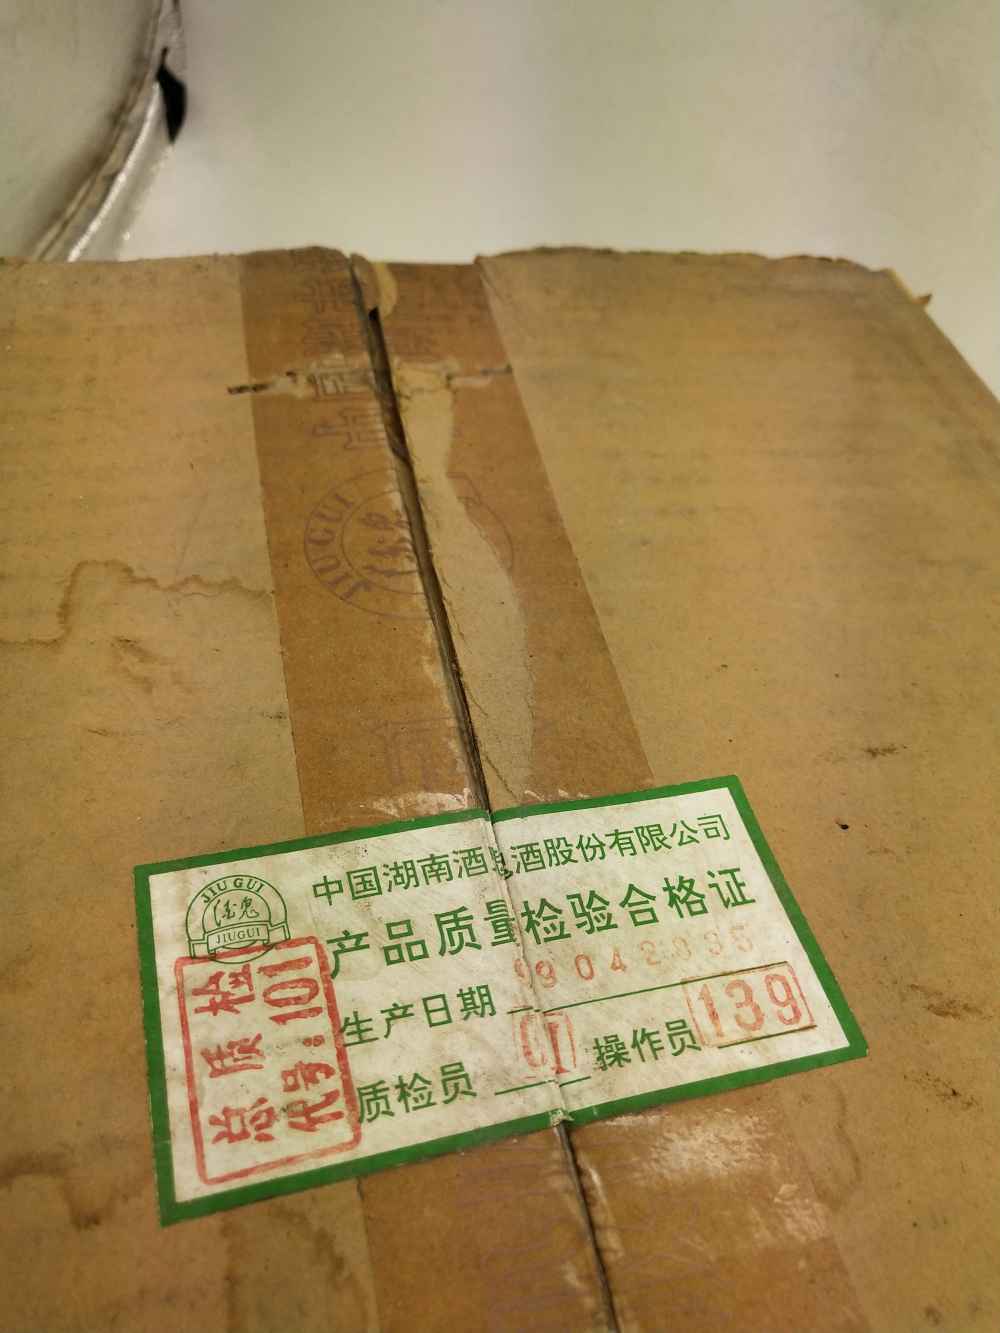 JIUGUI
酒鬼
JIU GUI
酒鬼
JIUGUI
中国湖南酒鬼酒股份有限公司
产品质量检验合格证
生产日期
质检员 01 操作员 139
总质检
代号:101